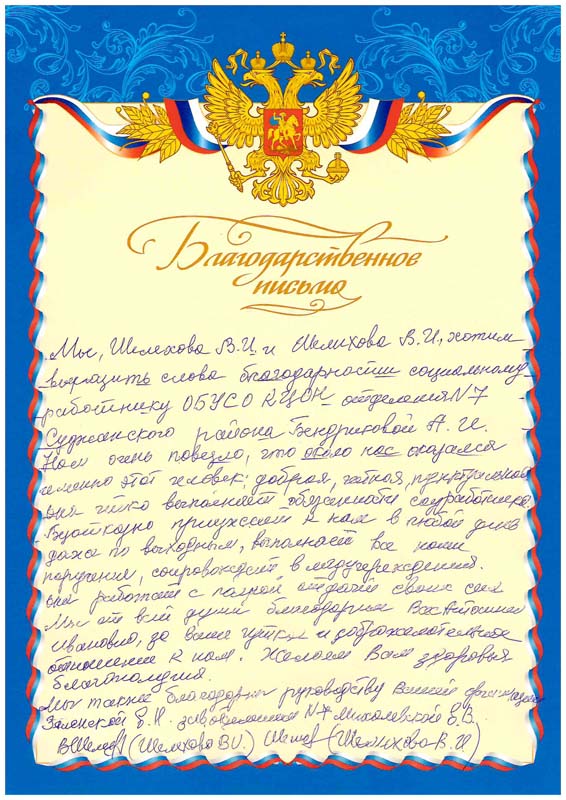 Благодарственное
письмо
Мы, Шелехова В.И. и Шелихова В.И., хотим
выразить слова благодарности социальному
работнику ОБУСО КЦСОН отделения N 7
Суджанского района Бендриковой А. И.
Нам очень повезло, что около нас оказался
именно этот человек: добрая, чуткая, пунктуальная
она чётко выполняет обязанности соцработника.
Безотказно приезжает к нам в любой день
даже по выходным, выполняет все наши
поручения, сопровождает в медучреждения.
Она работает с полной отдачей своих сил
Мы от всей души благодарим Вас Антонина
Ивановна, за ваше чуткое и доброжелательное
отношение к нам. Желаем Вам здоровья
благополучия.
Мы также благодарны руководству Вашей организации
зав.отделением N 7 Миколевской В.В.
(Шелехова В.И.) (Шелихова В. И)